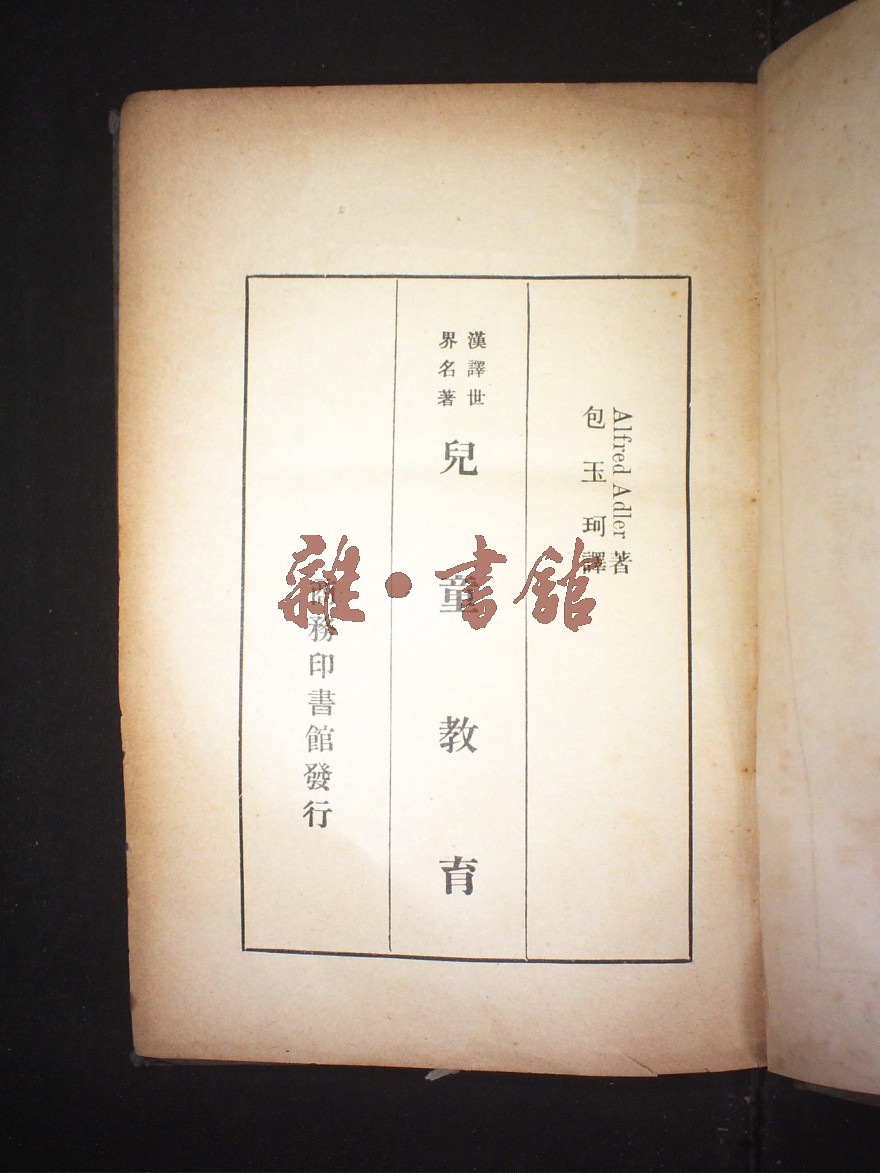 Alfred Adler 著
包玉珂譯
漢譯世
界名著
兒童教育
商務印書館發行
雜·書館